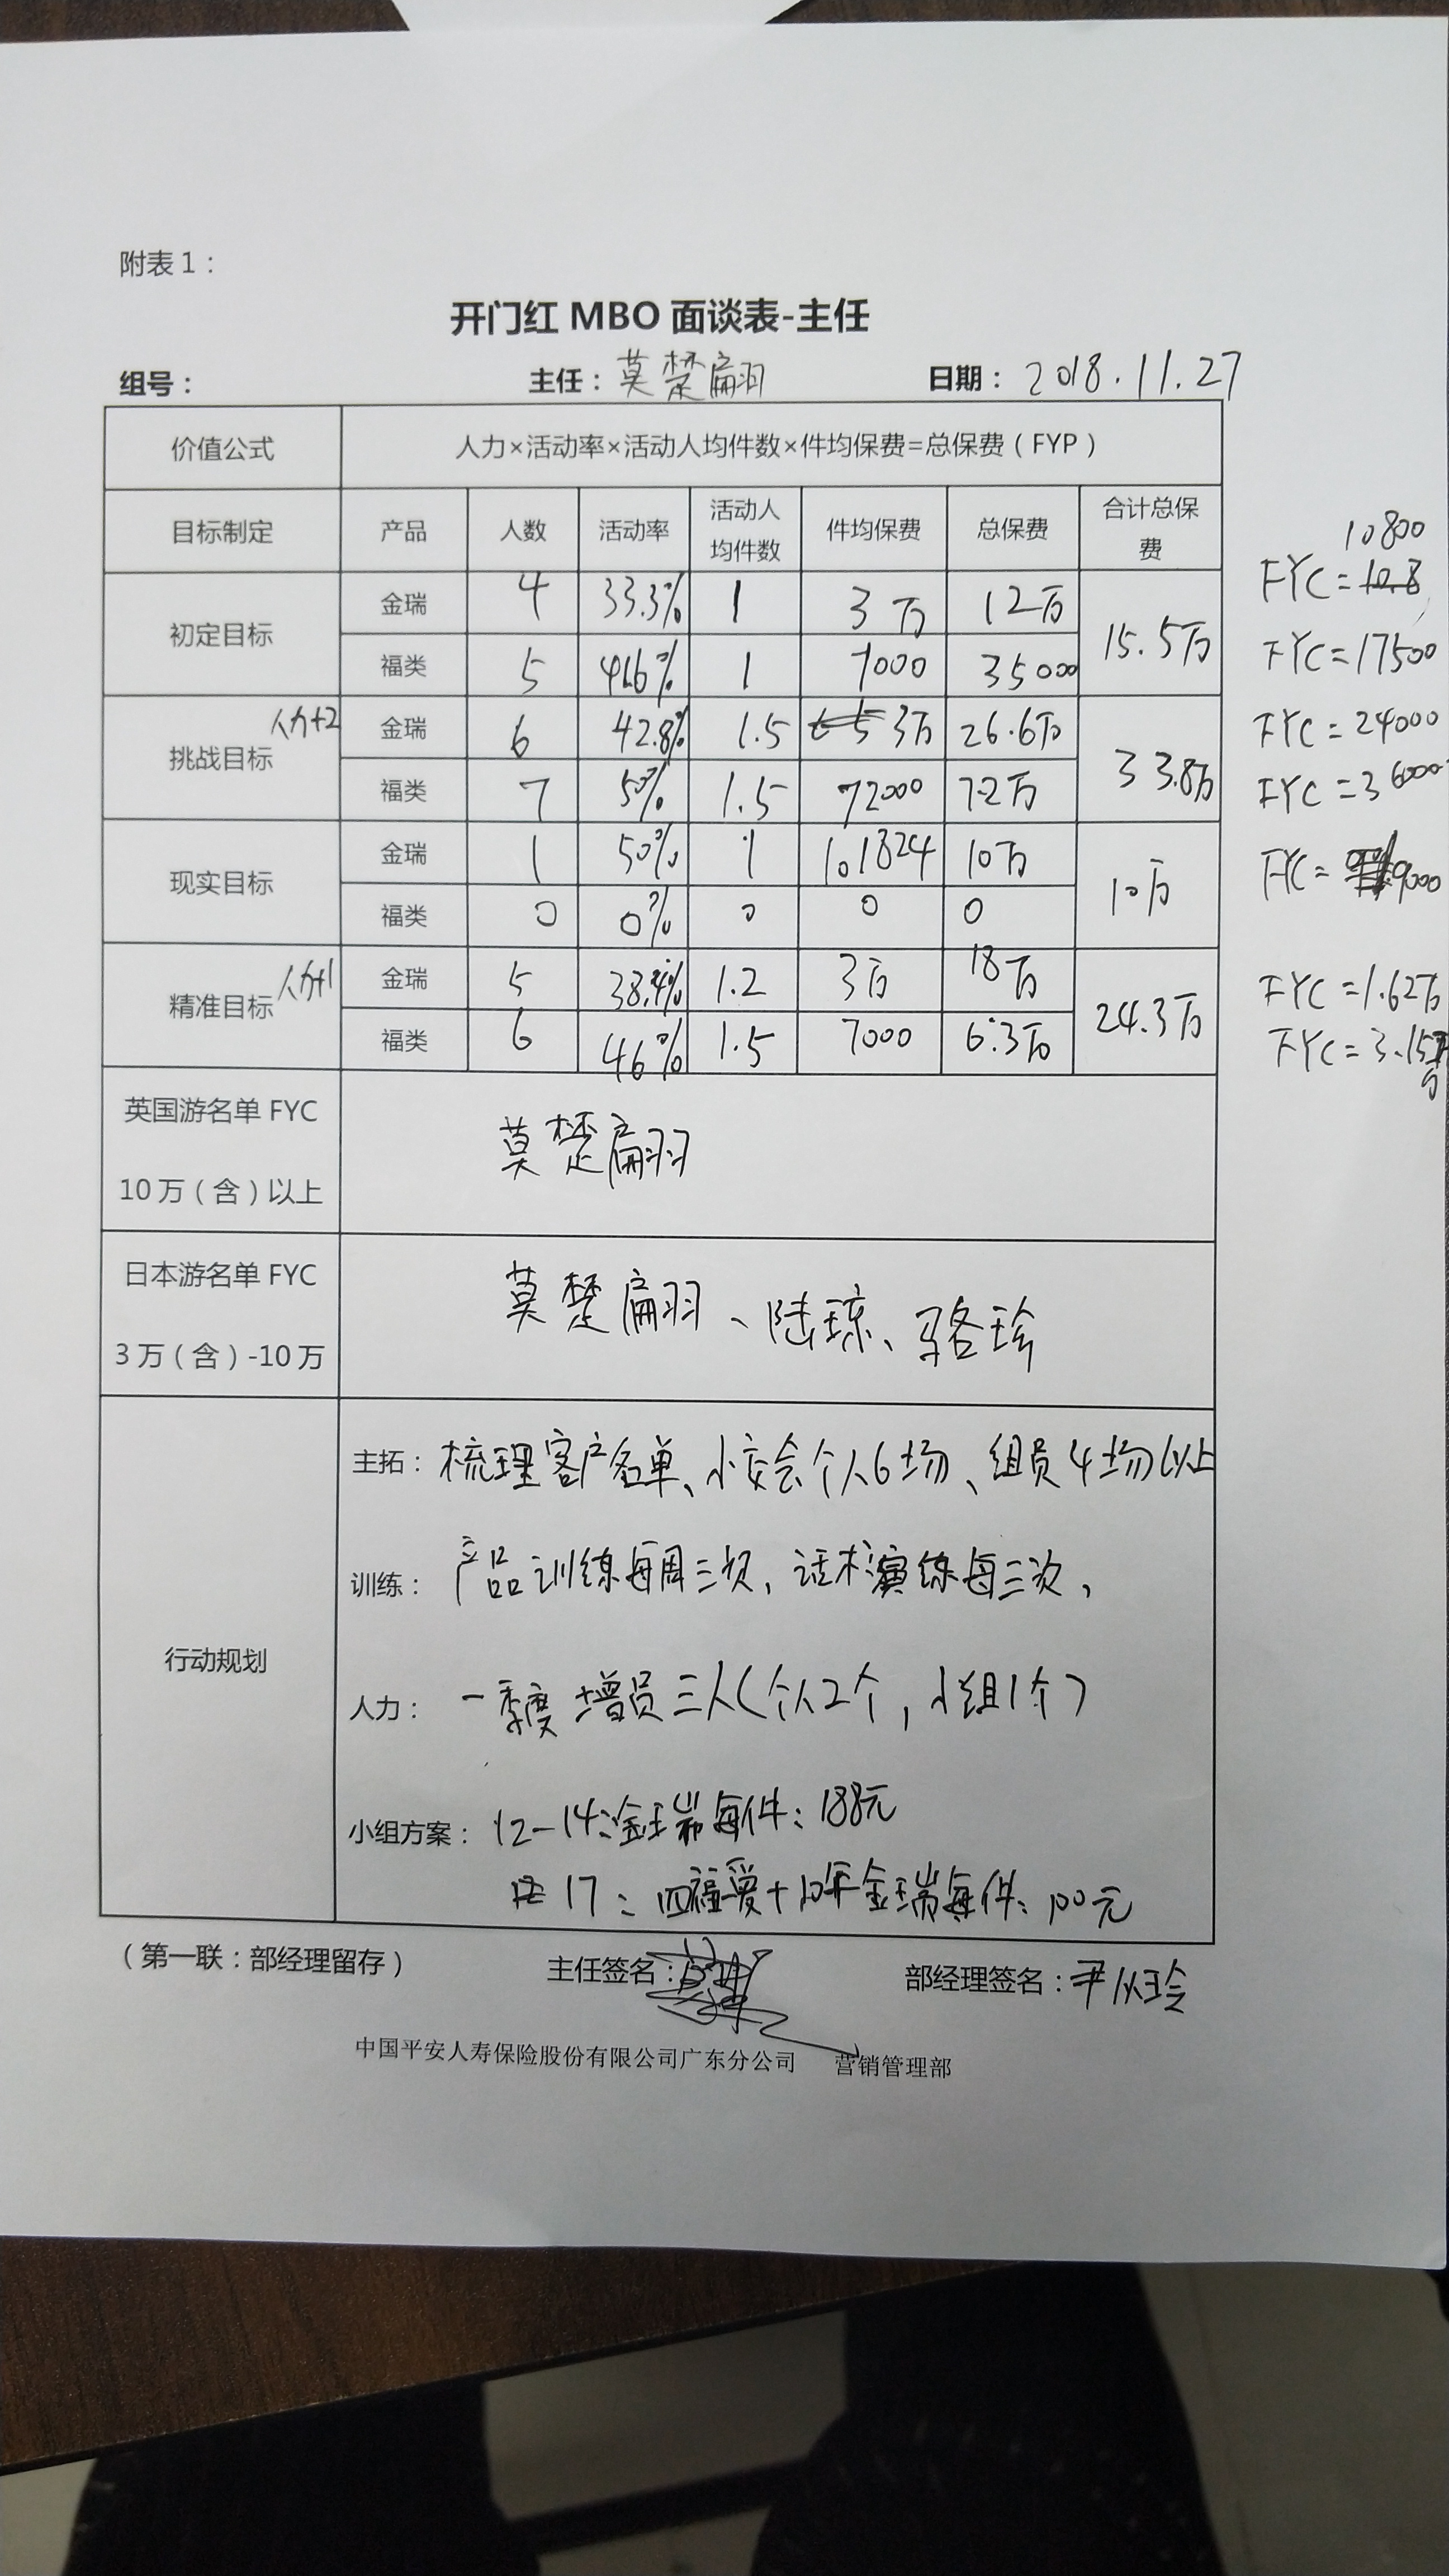 附表1：
开门红 MBO 面谈表-主任
组号： 主任：莫楚扁羽 日期：2018.11.27
价值公式 人力×活动率×活动人均件数×件均保费=总保费（FYP）
目标制定 产品 人数 活动率 活动人均件数 件均保费 总保费 合计总保费
10800
初定目标 金瑞 4 33.3% 1 3万 12万 15.5万 FYC=
福类 5 41.6% 1 7000 35000 FYC=17500
挑战目标 人力+2 金瑞 6 42.8% 1.5 3万 26.6万 33.8万 FYC=24000
福类 7 50% 1.5 72000 7.2万 FYC=36000
现实目标 金瑞 1 50% 1 101824 10万 10万 FYC=9000
福类 0 0% 0 0 0
精准目标 人力+1 金瑞 5 38.4% 1.2 3万 18万 24.3万 FYC=1.62万
福类 6 46% 1.5 7000 6.3万 FYC=3.15万
英国游名单 FYC
10万（含）以上
莫楚扁羽
日本游名单 FYC
3万（含）-10万
莫楚扁羽、陆琼、骆珍
行动规划
主拓：梳理客户名单、小交会个人6场、组员4场以上
训练：产品训练每周三次，话术演练每三次，
人力：一季度增员三人（个人2个，小组1个）
小组方案：12-14：金瑞每件：188元
17：四福爱+10年金瑞每件：100元
（第一联：部经理留存） 主任签名： 部经理签名：尹以玲
中国平安人寿保险股份有限公司广东分公司 营销管理部